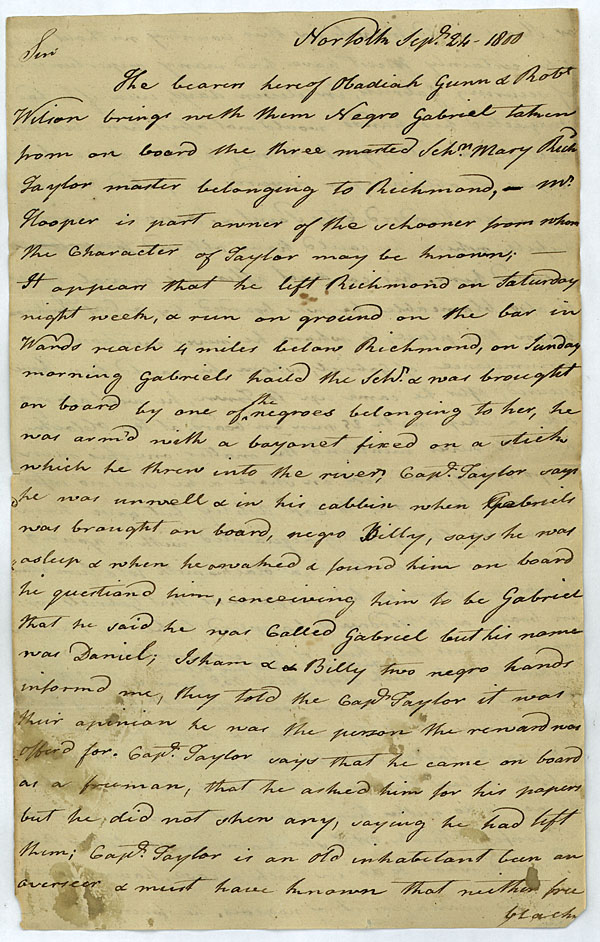 Norfolk Sepr. 24 - 1800
Sir
The bearers hereof Obadiah Gunn & Robt.
Wilson brings with them Negro Gabriel taken
from on board the three masted Schr. Mary Richd.
Taylor master belonging to Richmond, - Mr.
Hooper is part owner of the schooner from whom
the Character of Taylor may be known; —
It appears that he left Richmond on Saturday
night week, & run on ground on the bar in
Wards reach 4 miles below Richmond, on Sunday
morning Gabriels haild the Schr. & was brought
on board by one of the negroes belonging to her, he
was arm'd with a bayonet fixed on a stick
which he threw into the river, Capt. Taylor says
he was unwell & in his cabbin when Gabriels
was brought on board, negro Billy, says he was
asleep & when he awaked & found him on board
he questiond him, conceiving him to be Gabriel
that he said he was Called Gabriel but his name
was Daniel; Isham & & Billy two negro hands
informd me, they told the Capt. Taylor it was
their opinian he was the person the reward was
offerd for. Capt. Taylor says that he came on board
as a freeman, that he asked him for his papers
but he did not shew any, saying he had left
them; Capt. Taylor is an old inhabetant been an
overseer & must have known that neither free
black